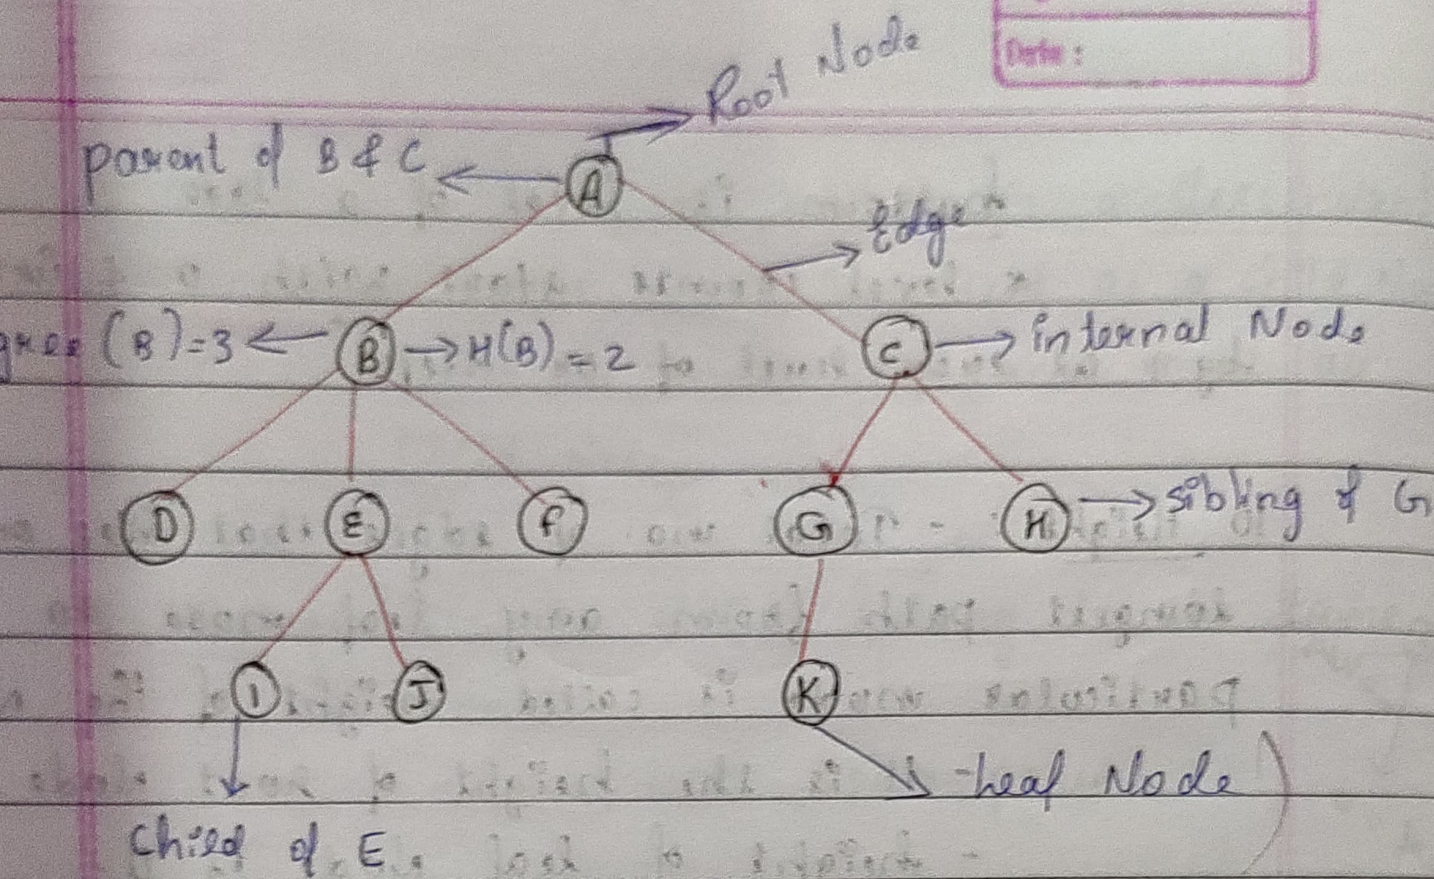 Date :
Root Node
parent of B & C
A
Edge
gree (B) = 3
B
H(B) = 2
C
internal Node
D
E
F
G
H
sibling of G
I
J
K
Leaf Node
Child of E.